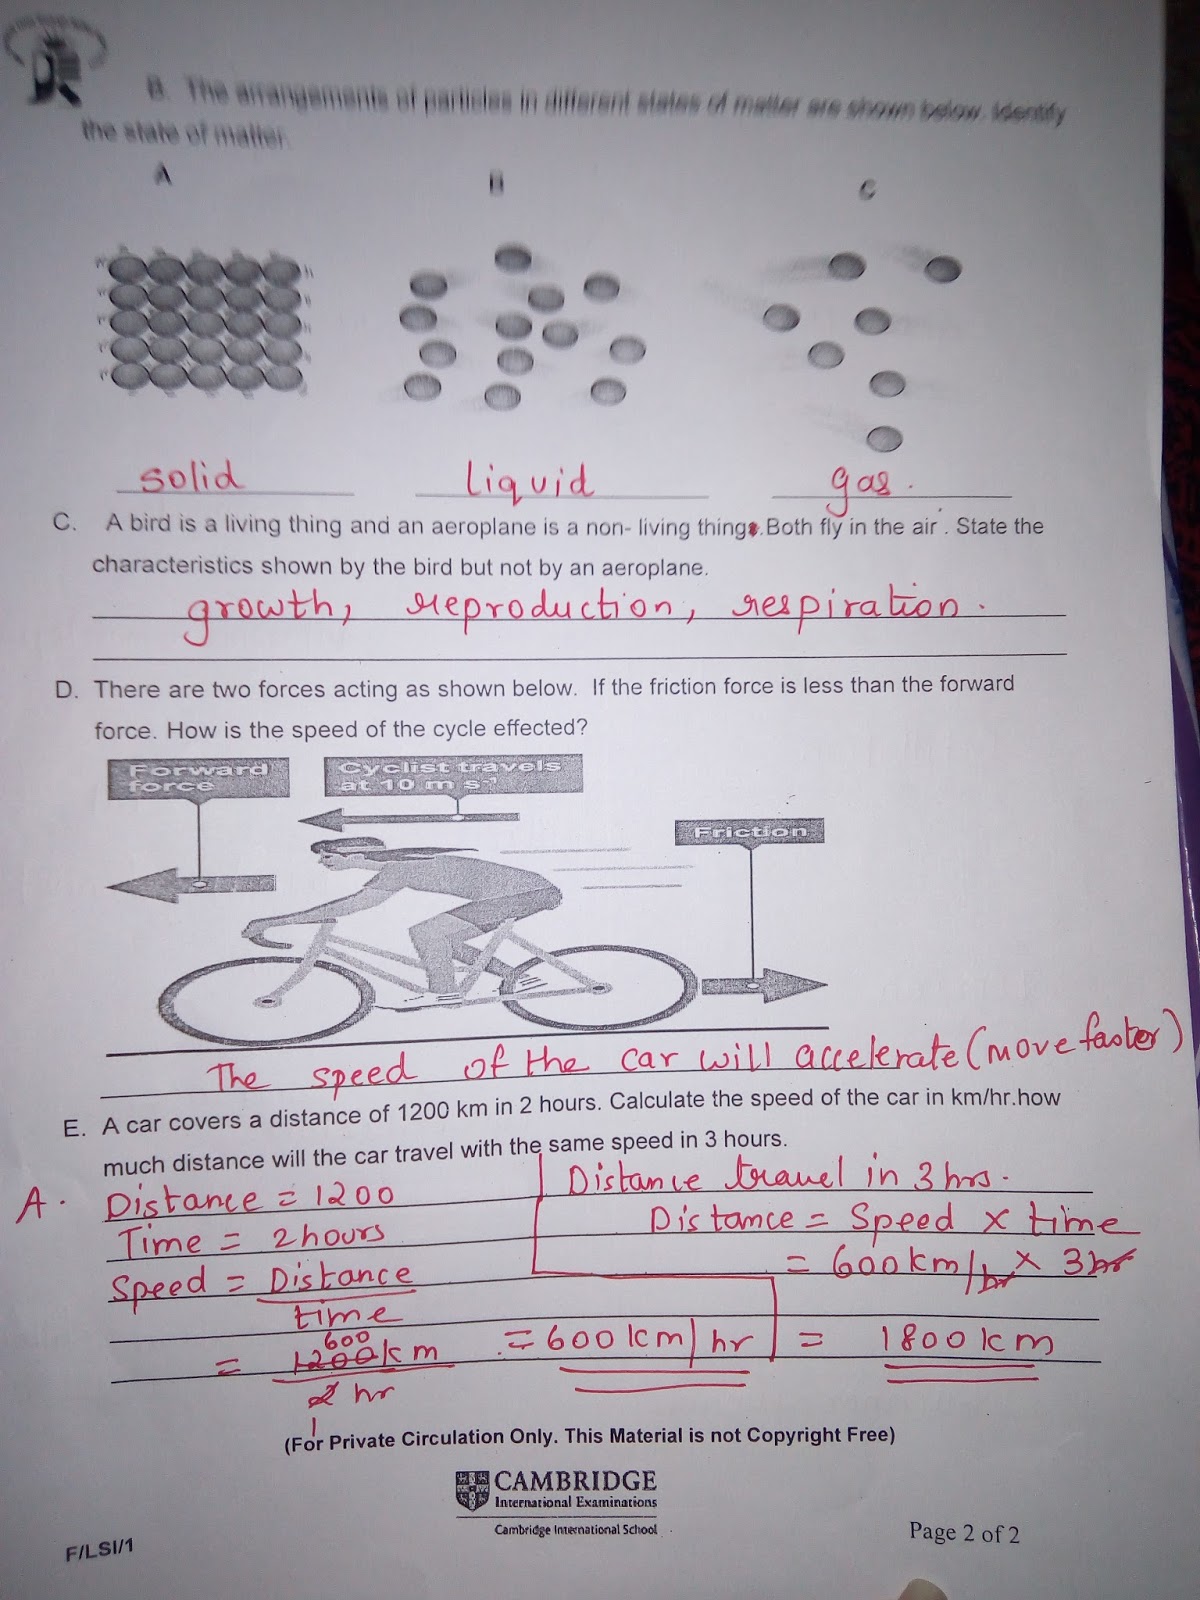 B. The arrangements of particles in different states of matter are shown below. Identify
the state of matter.
A B C
solid liquid gas.
C. A bird is a living thing and an aeroplane is a non- living things.Both fly in the air . State the
characteristics shown by the bird but not by an aeroplane.
growth, reproduction, respiration.
D. There are two forces acting as shown below. If the friction force is less than the forward
force. How is the speed of the cycle effected?
Forward
force
Cyclist travels
at 10 m s⁻¹
Friction
The speed of the car will accelerate (move faster)
E. A car covers a distance of 1200 km in 2 hours. Calculate the speed of the car in km/hr.how
much distance will the car travel with the same speed in 3 hours.
A. Distance = 1200
Time = 2 hours
Speed = Distance
time
600
= 1200km = 600 km/hr
2 hr
1
Distance travel in 3 hrs.
Distance = Speed x time
= 600km/hr x 3hr
= 1800 km
(For Private Circulation Only. This Material is not Copyright Free)
CAMBRIDGE
International Examinations
Cambridge International School
F/LSI/1
Page 2 of 2